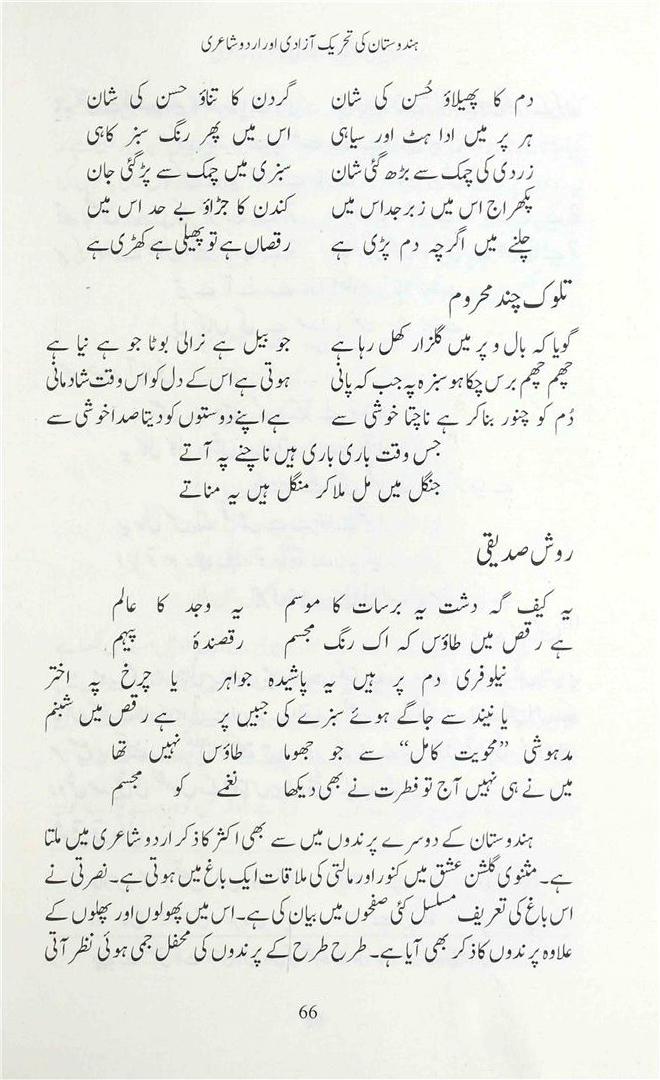 ہندوستان کی تحریک آزادی اور اردو شاعری
دم کا پھیلاؤ حُسن کی شان گردن کا تناؤ حسن کی شان
ہر پر میں اداہٹ اور سیاہی اس میں پھر رنگ سبز کاہی
زردی کی چمک سے بڑھ گئی شان سبزی میں چمک سے پڑ گئی جان
پکھراج اس میں زبرجد اس میں کندن کا جڑاؤ بے حد اس میں
چلنے میں اگرچہ دم پڑی ہے رقصاں ہے تو پھیلی ہے کھڑی ہے
تلوک چند محروم
گویا کہ بال و پر میں گلزار کھل رہا ہے جو بیل ہے نرالی بوٹا جو ہے نیا ہے
چھم چھم برس چکا ہو سبزہ پہ جب کہ پانی ہوتی ہے اس کے دل کو اس وقت شادمانی
دُم کو چنور بنا کر ہے ناچتا خوشی سے ہے اپنے دوستوں کو دیتا صدا خوشی سے
جس وقت باری باری ہیں ناچنے پہ آتے
جنگل میں مل ملا کر منگل ہیں یہ مناتے
روش صدیقی
یہ کیف گہ دشت یہ برسات کا موسم یہ وجد کا عالم
ہے رقص میں طاؤس کہ اک رنگ مجسم رقصندۂ پیہم
نیلوفری دم پر ہیں یہ پاشیدہ جواہر یا چرخ پہ اختر
یا نیند سے جاگے ہوئے سبزے کی جبیں پر ہے رقص میں شبنم
مدہوشی ”محویت کامل“ سے جو جھوما طاؤس نہیں تھا
میں نے ہی نہیں آج تو فطرت نے بھی دیکھا نغمے کو مجسم
ہندوستان کے دوسرے پرندوں میں سے بھی اکثر کا ذکر اردو شاعری میں ملتا
ہے۔ مثنوی گلشن عشق میں کنور اور مالتی کی ملاقات ایک باغ میں ہوتی ہے۔ نصرتی نے
اس باغ کی تعریف مسلسل کئی صفحوں میں بیان کی ہے۔ اس میں پھولوں اور پھلوں کے
علاوہ پرندوں کا ذکر بھی آیا ہے۔ طرح طرح کے پرندوں کی محفل جمی ہوئی نظر آتی
66